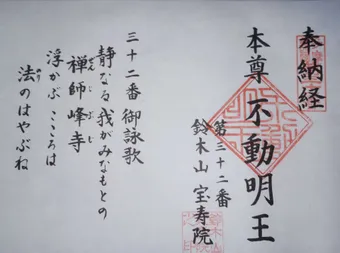 奉納経
本尊 不動明王
第三十二番
鈴木山 宝寿院
三十二番 御詠歌
静なる 我がみなもとの
禅師峰寺
ぜんじぶじ
浮かぶ こころは
法のはやぶね
のり